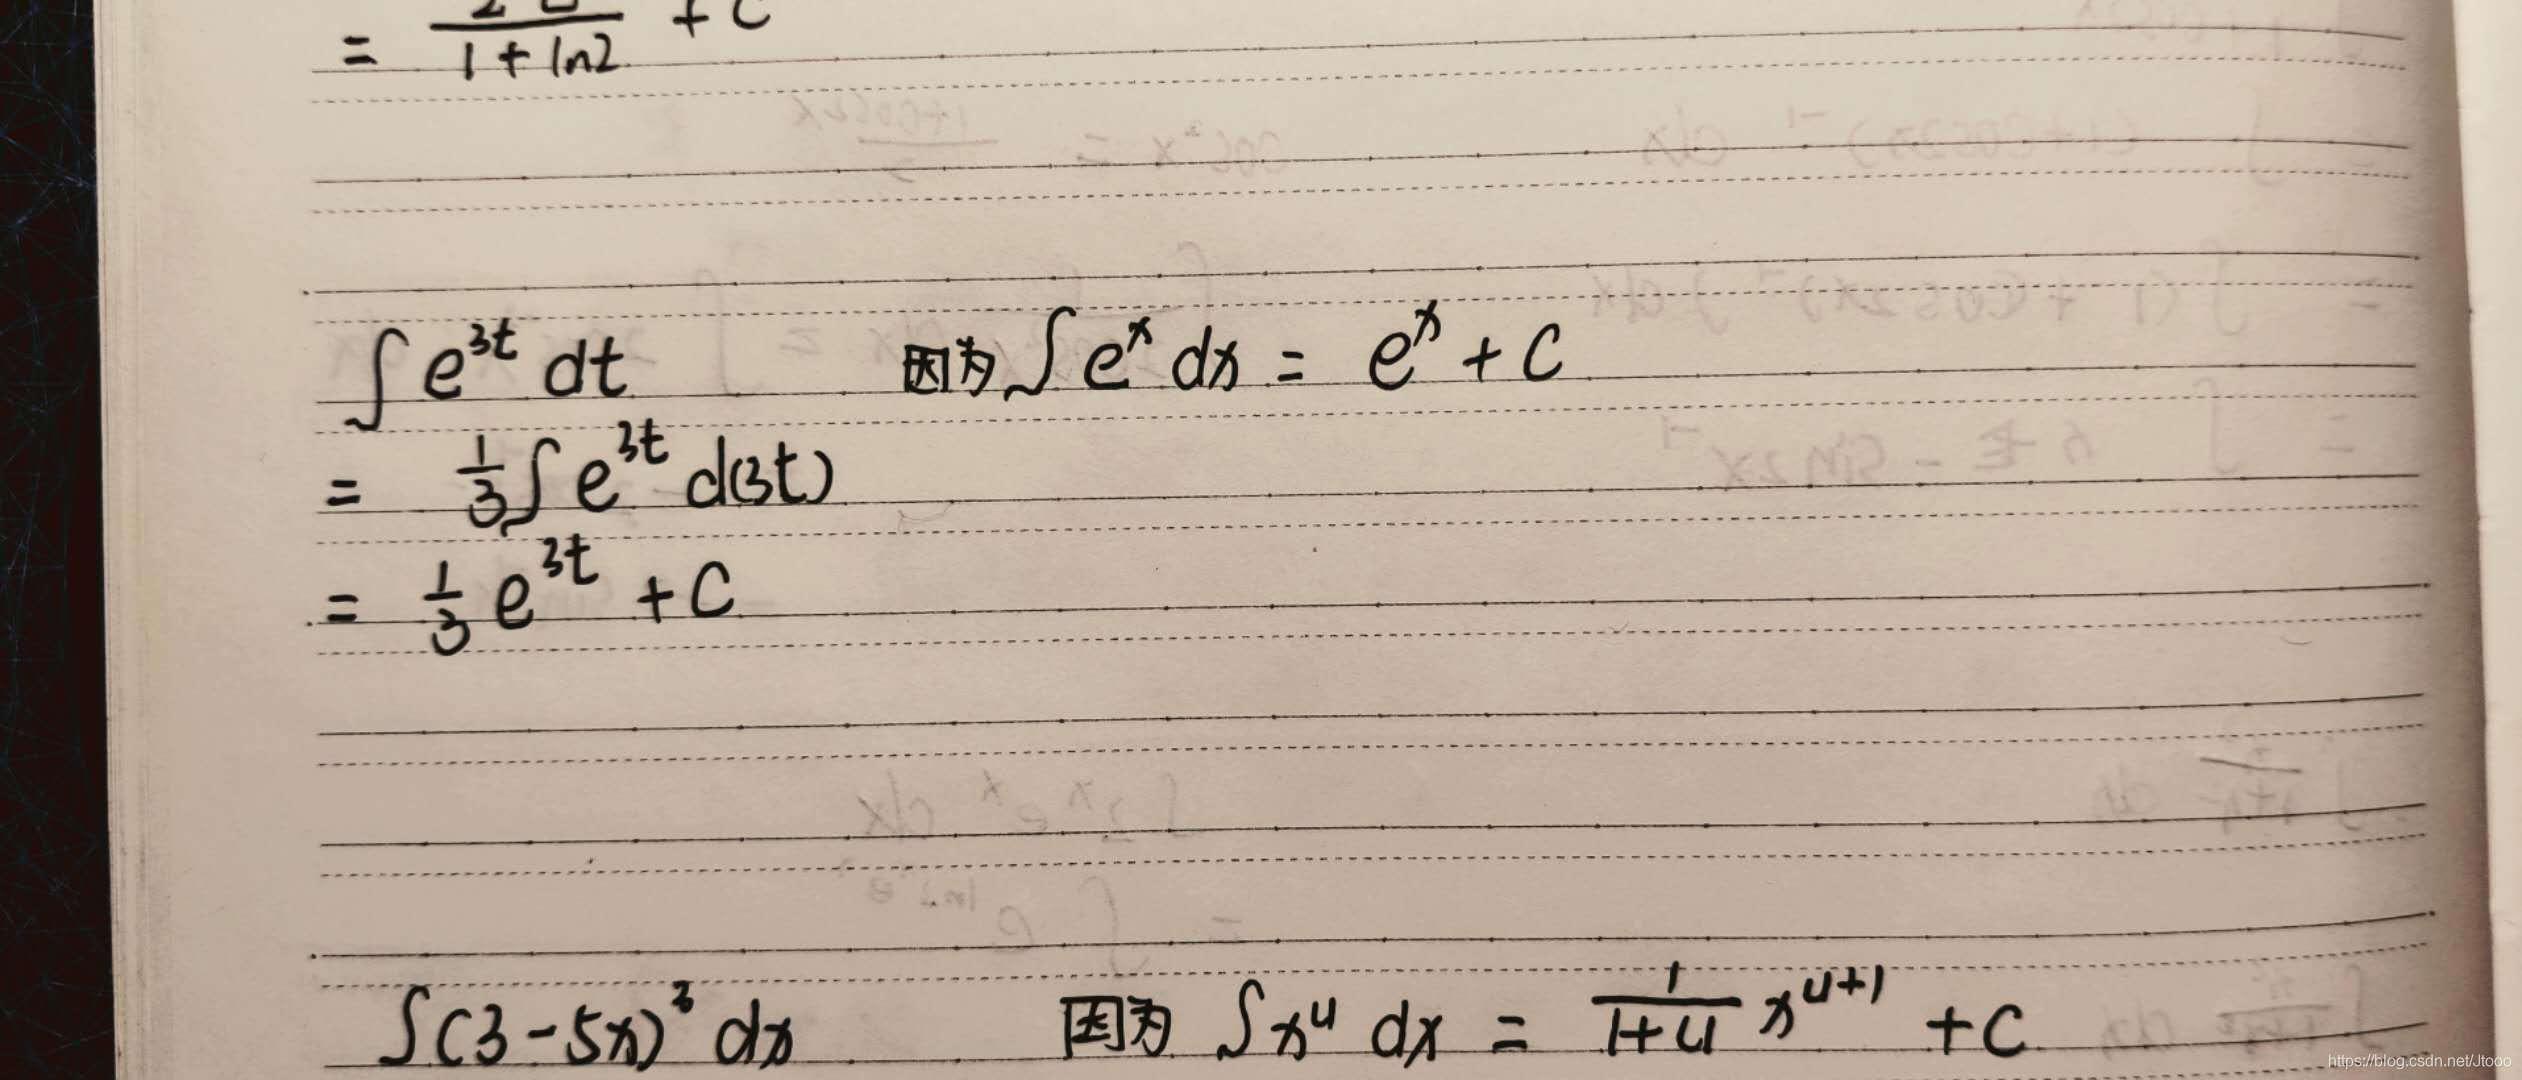 = 1 + ln2 + C
∫ e^{3t} dt 因为 ∫ e^x dx = e^x + C
= 1/3 ∫ e^{3t} d(3t)
= 1/3 e^{3t} + C
∫ (3 - 5x)^3 dx 因为 ∫ x^u dx = 1/(1+u) x^{u+1} + C
https://blog.csdn.net/Jtooo